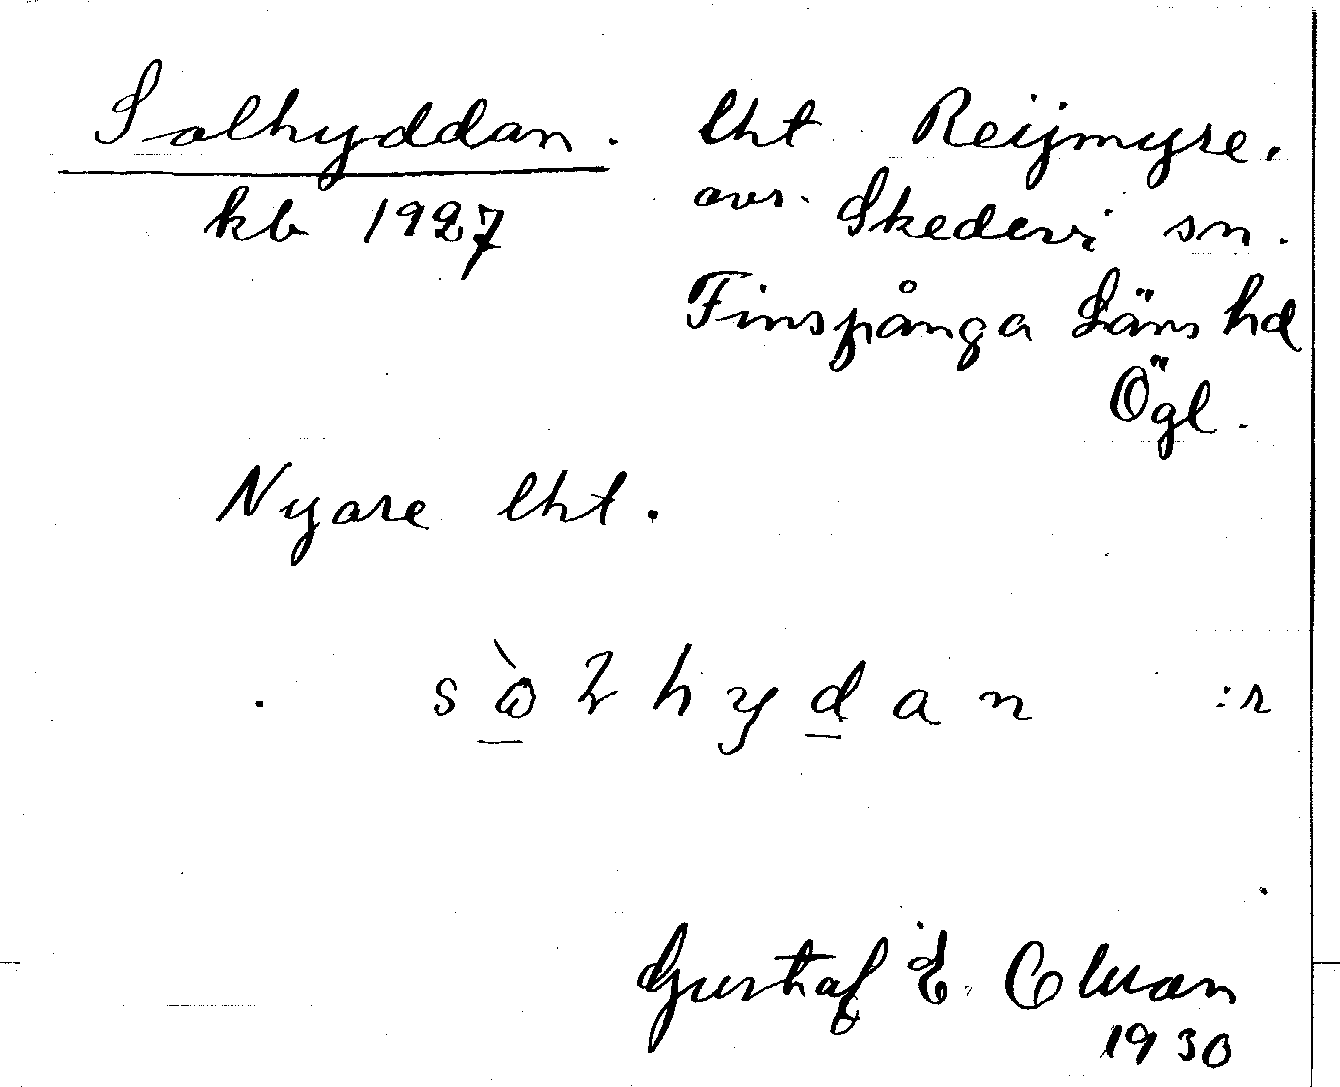 Solhyddan. lht Reijmyre.
kb 1927 avs. Skedevi sn.
Finspånga Läns hd
Ögl.
Nyare lht.
sὼlhydan :r
Gustaf E.
1930